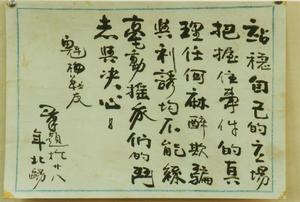 站穩自己的立場
把握住事件的真
理任何麻醉欺騙
與利誘均不能絲
毫動搖我們的鬥
志與決心！
友
題於廿八
年北